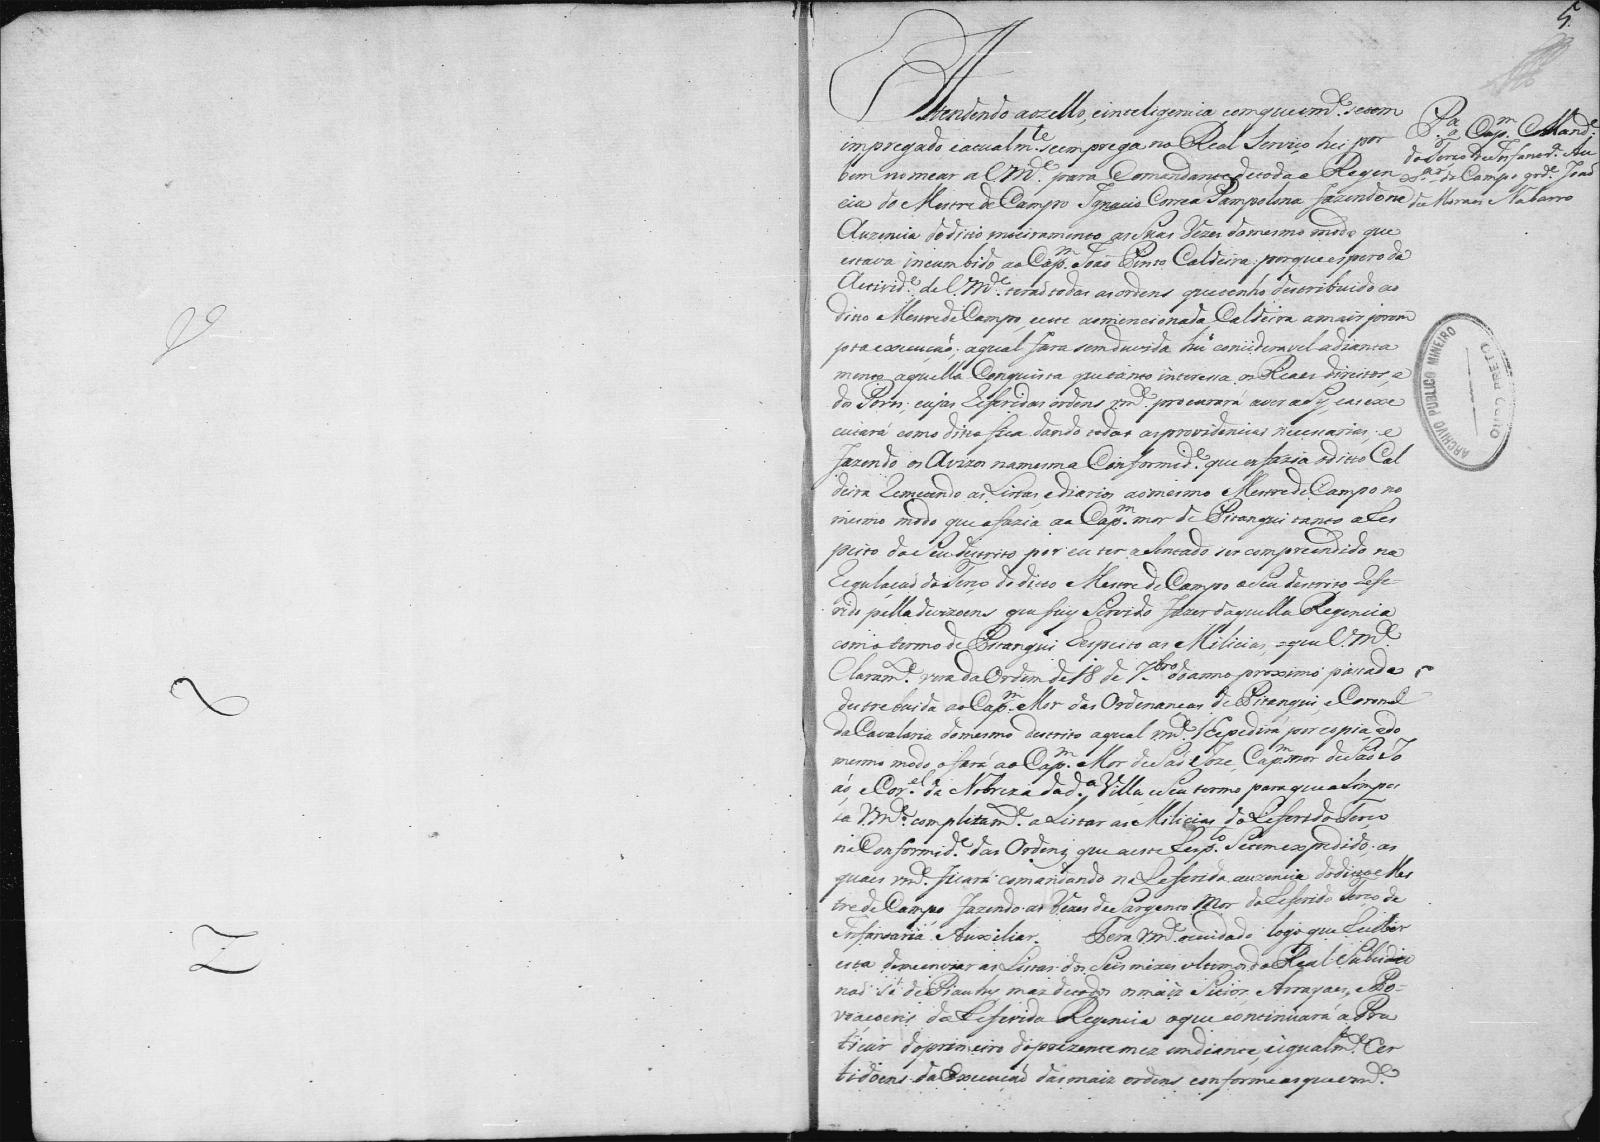 5.
Attendendo ao zello, e inteligencia com que vm.ce se tem
impregado e actualm.te se emprega no Real Serviço hei por
bem nomear a V.M.ce para Comandante de toda a Regen
cia do Mestre de Campo Ignacio Correa Pampolona fazendo na
Auzencia do dito inteiramente as suas vezes do mesmo modo que
estava incumbido ao Cap.m João Pinto Caldeira, porque espero da
Activid.e de V.M.ce terão todas as ordens que tenho destribuido ao
ditto Mestre de Campo, e este ao mencionado Caldeira a mais prom
pta execução, a qual fara sem duvida hũ consideravel adianta
mento aquella Conquista que tanto interessa os Reaes direitos, e
dos Povos, cujas referidas ordens vm.ce procurará aver a sy, e as exe
cutará como dito fica dando todas as providencias necessarias, e
fazendo os Avizos na mesma Conformid.e que os fazia o ditto Cal
deira remetendo as Listas, e diarios ao mesmo Mestre de Campo no
mesmo modo que o fazia ao Cap.m mor de Pitangui tanto a Res
peito do seu destrito por eu ter asentado ser compreendido na
Regulação do Terço do ditto Mestre de Campo o seu destrito refe-
rido pella divizoens que fuy Servido fazer daquella Regencia
com o termo de Pitangui Respeito as Milicias, o que V.M.ce
Claram.te vera da Ordem de 18 de 7.bro do anno proximo passado
destrebuida ao Cap.m Mor das Ordenanças de Pitangui, e Coronel
da Cavalaria do mesmo destrito a qual vm.ce expedirá por copia, e do
mesmo modo o fará ao Cap.m Mor de São Joze, Cap.m mor de São Jo
ão e Cor.el da Nobreza da d.a Villa e seu termo para que a Simpes
ta V.M.ce complitam.te a Listar as Milicias do Referido Terço
na Conformid.e das Ordens, que a este Resp.to Se tem expedido, as
quaes vm.ce ficará comandando na Referida auzencia do ditto Mes
tre de Campo, fazendo as vezes de Sargento Mor do Referido Terço de
Infantaria Auxiliar. Terá vm.ce o cuidado logo que receber
esta de me enviar as Listas dos Seis mezes ultimos do Real Subcidio
não só de Piauhy mas de todos os mais Sitios, Arrayaes, e Po-
voaçoens da Referida Regencia o que continuará a Pra
ticar do primeiro do prezente mez em diante, e igualm.te Cer
tidoens da Execução das mais ordens conforme as que vm.ce
P.a o Cap.m Comand.e
do Terço de Infantr.a Au
x.ar de Campo grd.e João
de Moraes Navarro
ARCHIVO PUBLICO MINEIRO
OURO PRETO